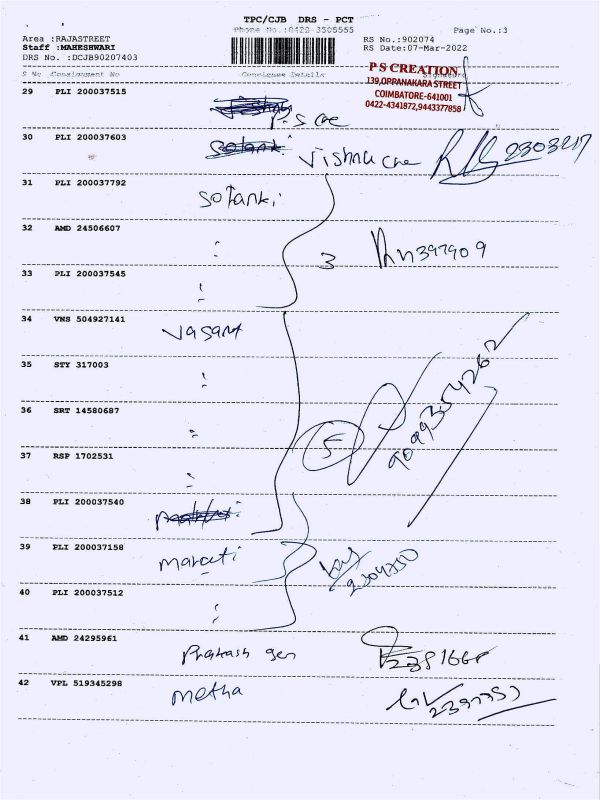 TPC/CJB DRS - PCT
Phone No.:0422-3505555 Page No.:3
Area :RAJASTREET RS No.:902074
Staff :MAHESHWARI RS Date:07-Mar-2022
DRS No. :DCJB90207403
S No Consignment No Consignee Details Signature
P S CREATION
139,OPPANAKARA STREET
COIMBATORE-641001
0422-4341872,9443377858
29 PLI 200037515
P.S cre
30 PLI 200037603
Vishnu cre 2303217
31 PLI 200037792
solanki
32 AMD 24506607
3 397909
33 PLI 200037545
34 VNS 504927141
Vasant
35 STY 317003
36 SRT 14580687
5 9093354262
37 RSP 1702531
38 PLI 200037540
39 PLI 200037158
maruti
2304750
40 PLI 200037512
41 AMD 24295961
Prakash gen
42 VPL 519345298
metha